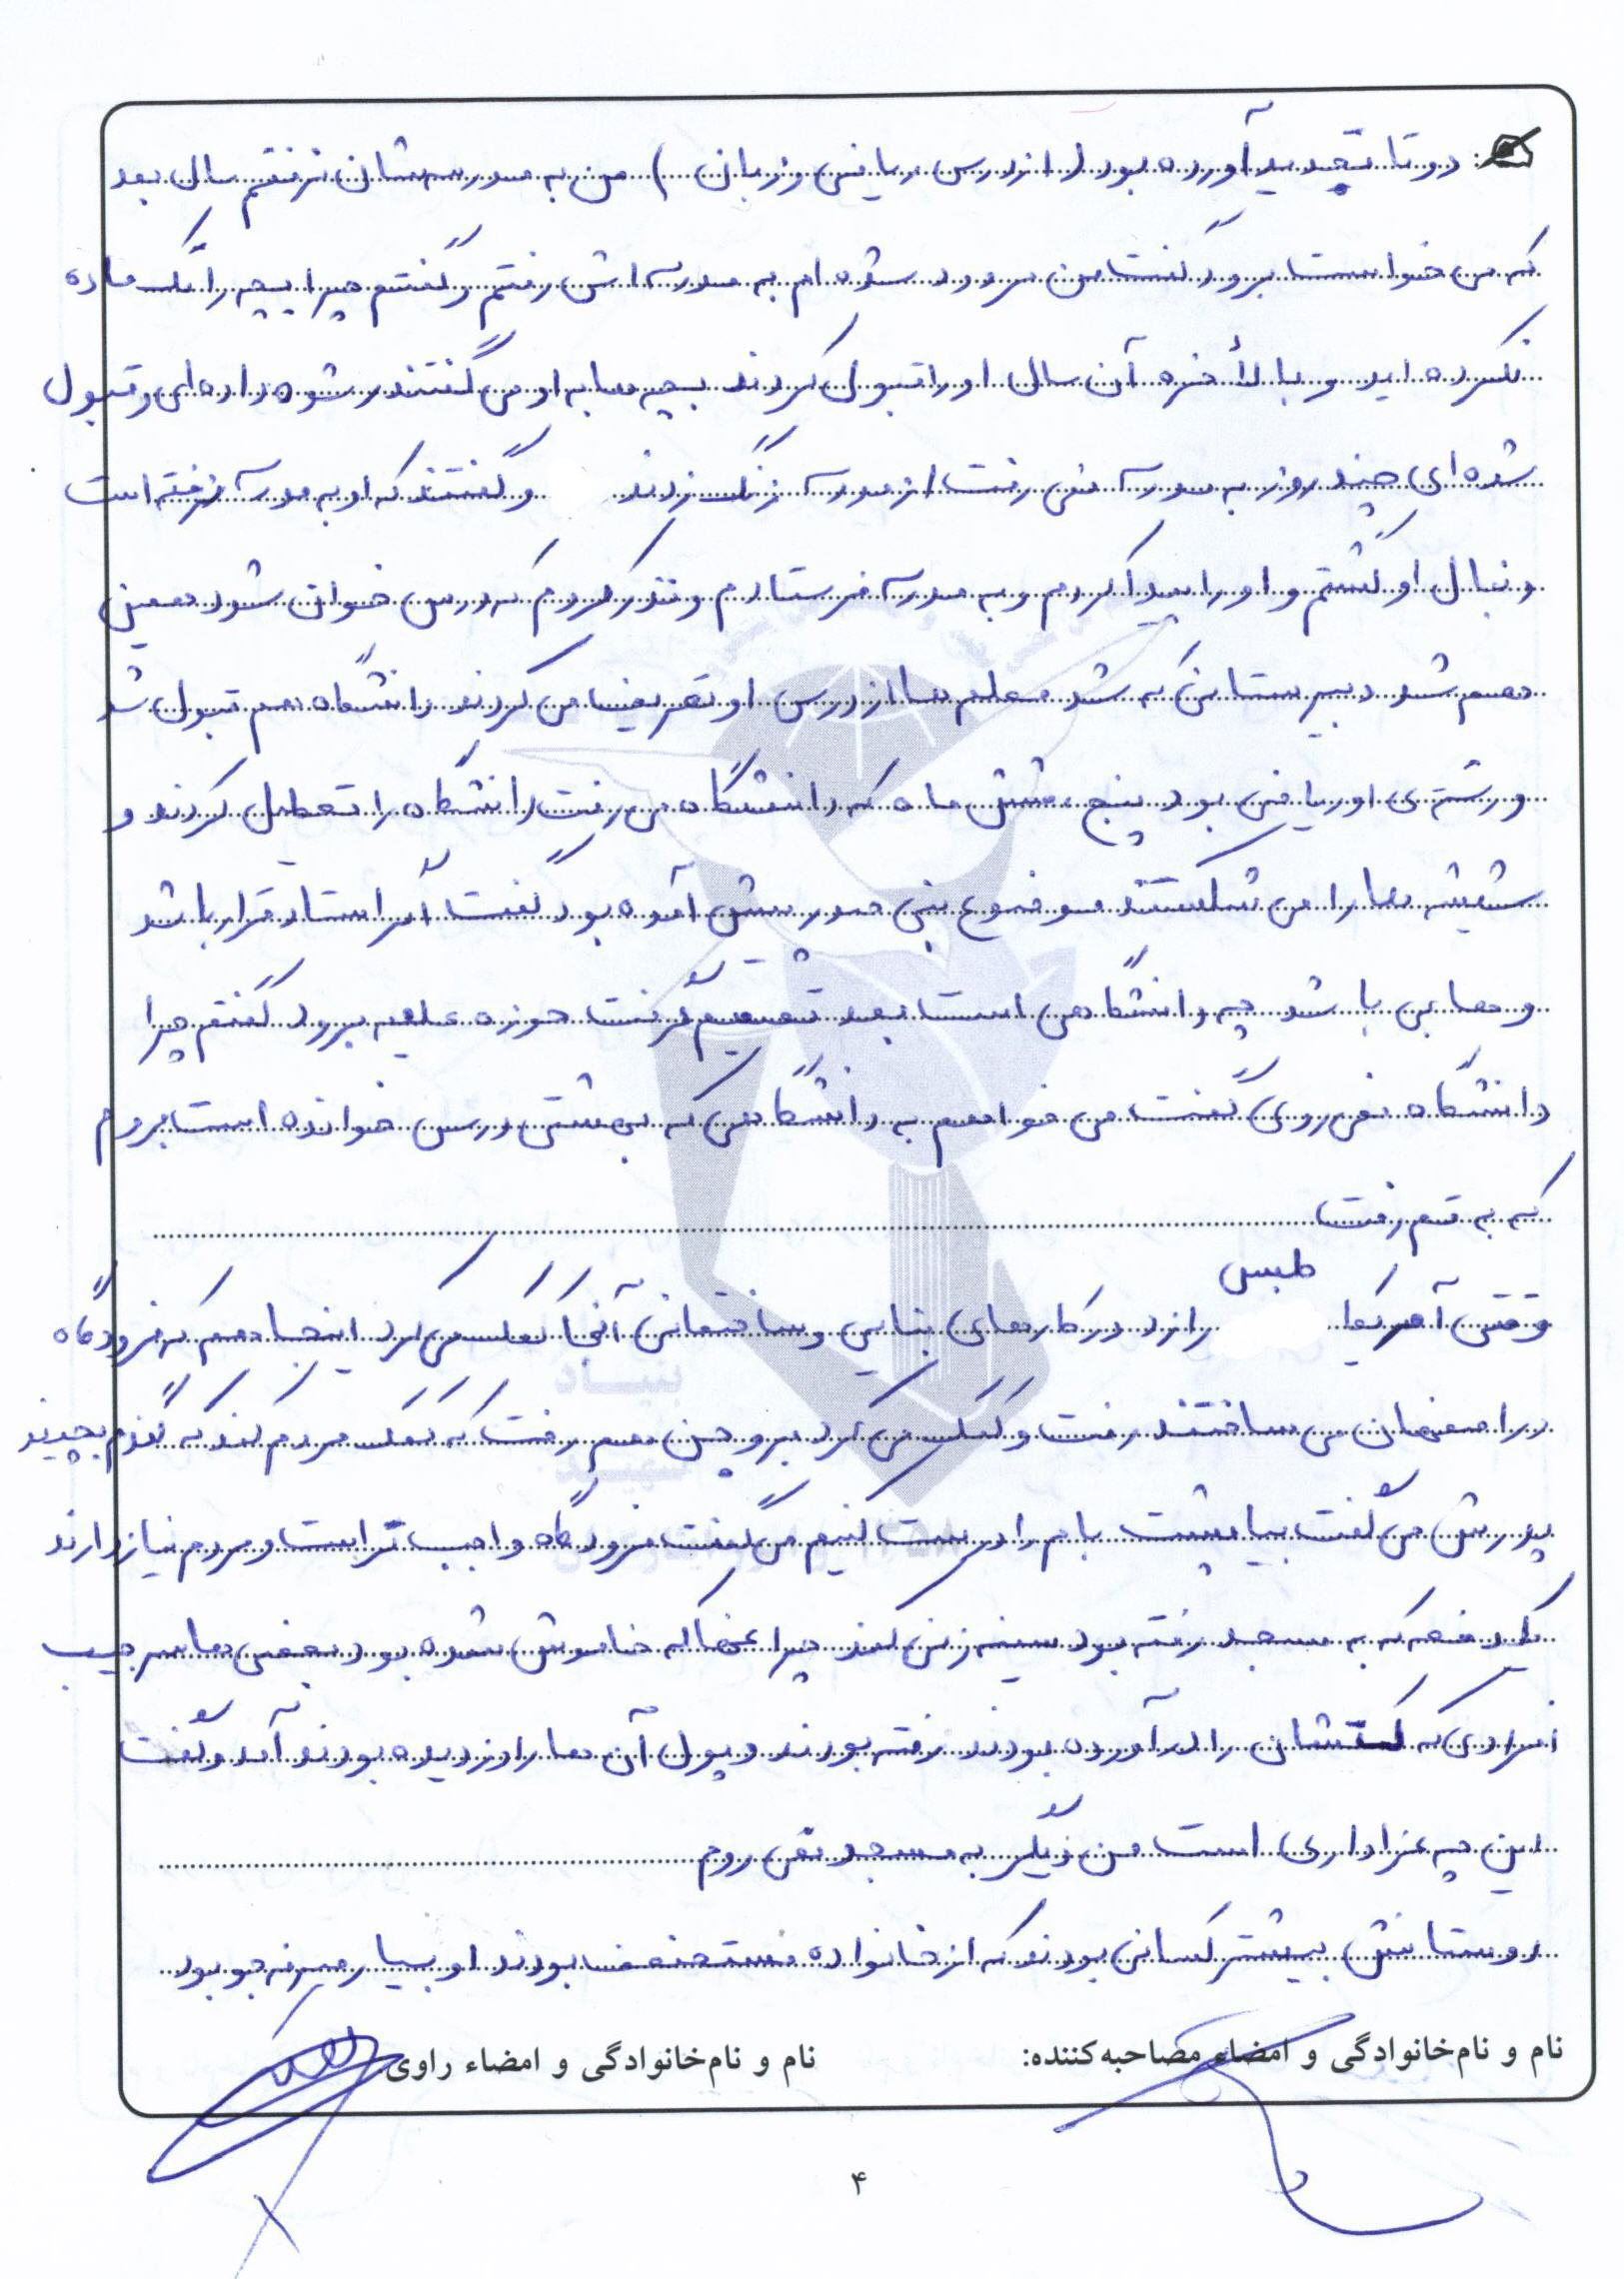 دو تا تجدید آورده بود ( از درس ریاضی و زبان ) من به مدرسه‌شان نرفتم سال بعد
که می خواست برود گفت من مردود شده ام به مدرسه اش رفتم و گفتم چرا بچه را تک ماده
نکرده اید و بالأخره آن سال او را قبول کردند بچه ها به او می گفتند رشوه داده‌ای و قبول
شده‌ای چند روز به مدرسه نمی رفت از مدرسه زنگ زدند و گفتند که او به مدرسه نرفته است
دنبال او گشتم و او را پیدا کردم و به مدرسه فرستادم و نذر کردم که درس خوان شود همین
هم شد دبیرستانی که شد معلم ها از درس او تعریف می کردند دانشگاه هم قبول شد
و رشته ی او ریاضی بود پنج، شش ماه که دانشگاه می رفت دانشگاه را تعطیل کردند و
شیشه ها را می شکستند موضوع بنی صدر پیش آمده بود گفت آمر استاد قرار باشد
وهابی باشد چه دانشگاهی است بعد تصمیم گرفت حوزه علمیه برود گفتم چرا
دانشگاه نمی روی گفت می خواهم به دانشگاهی که بهشتی درس خوانده است بروم
که به قم رفت
وقتی آمریکا طبس را زد در کارهای بنایی و ساختمانی آنجا کمک می کرد اینجا هم که فرودگاه
را اصفهان می ساختند رفت و کمک می کرد بروجن هم رفت که کمک مردم کند که گندم بچینند
پدرش می گفت بیا پشت بام را درست کنیم می گفت فرودگاه واجب تر است و مردم نیاز دارند
یک دفعه که به مسجد رفته بود سینه زنی کند چراغها که خاموش شده بود بعضی ها سر جیب
افرادی که کتشان را در آورده بودند رفته بودند و پول آن ها را دزدیده بودند آمد و گفت
این چه عزاداری است من دیگر به مسجد نمی روم
دوستانش بیشتر کسانی بودند که از خانواده مستضعف بودند او بسیار صرفه جو بود
نام و نام‌خانوادگی و امضاء مصاحبه‌کننده: نام و نام‌خانوادگی و امضاء راوی
۴